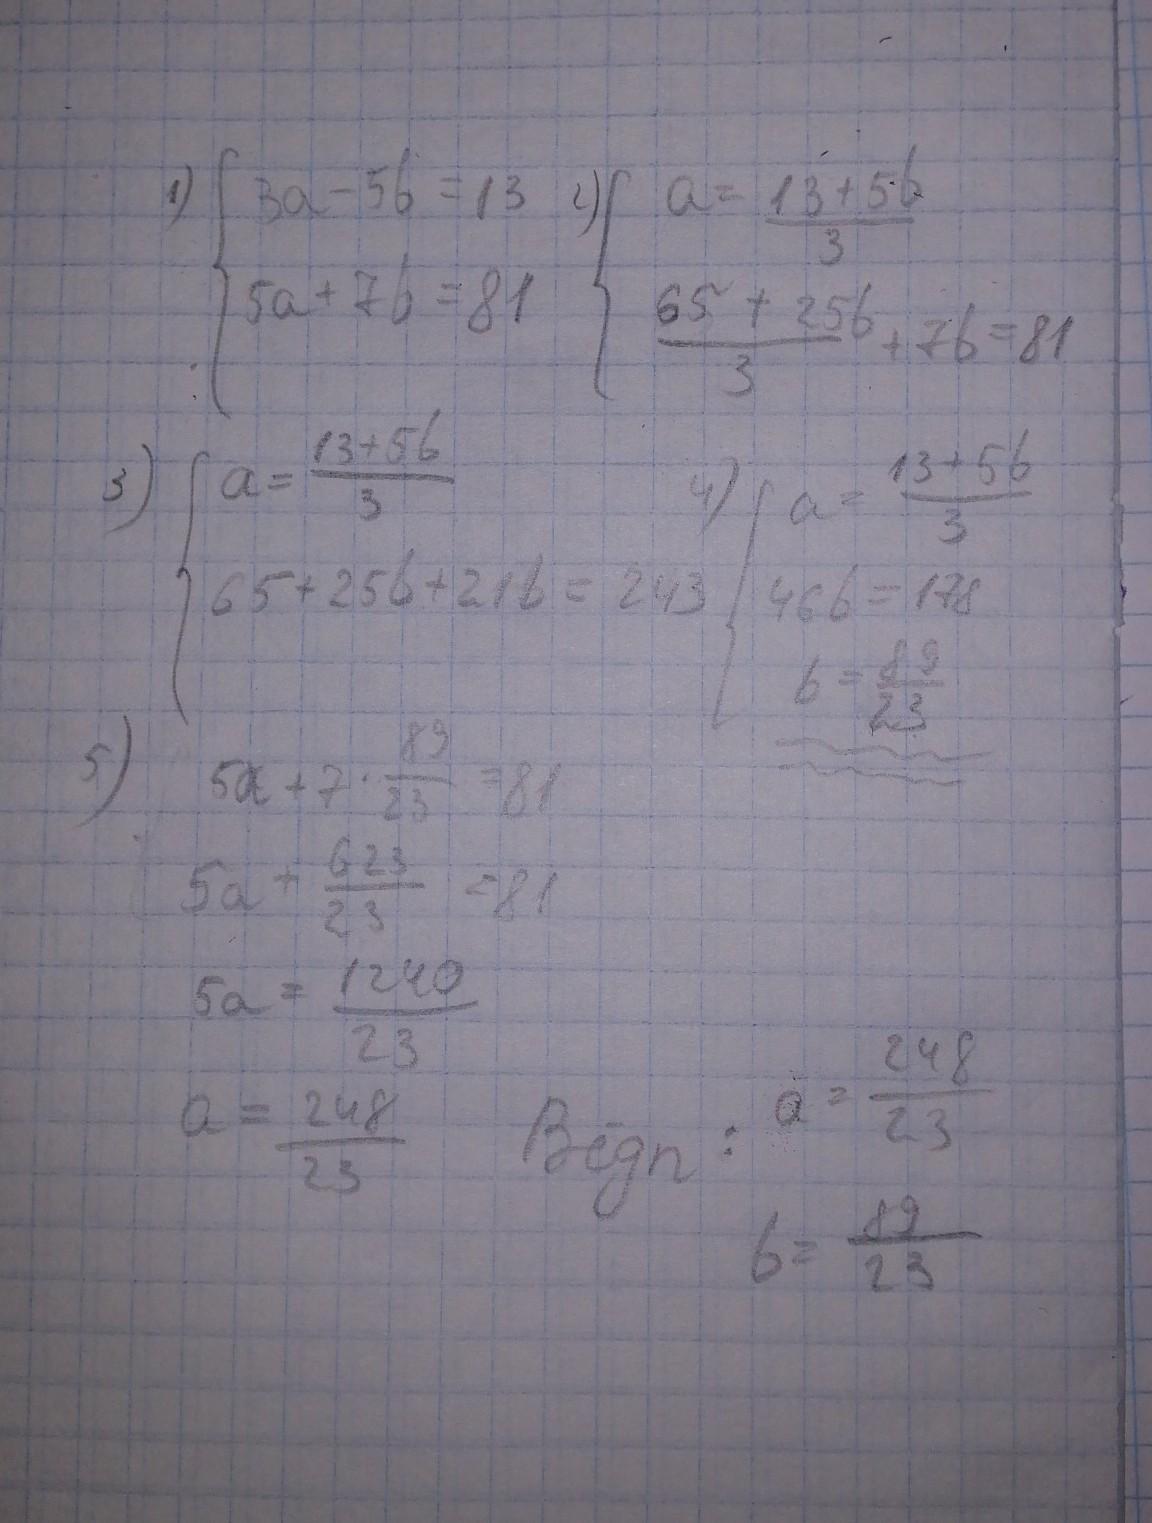 1) { 3a - 5b = 13
5a + 7b = 81
2) { a = (13 + 5b)/3
(65 + 25b)/3 + 7b = 81
3) { a = (13 + 5b)/3
65 + 25b + 21b = 243
4) { a = (13 + 5b)/3
46b = 178
b = 89/23
5) 5a + 7 · 89/23 = 81
5a + 623/23 = 81
5a = 1240/23
a = 248/23
Відп : a = 248/23
b = 89/23